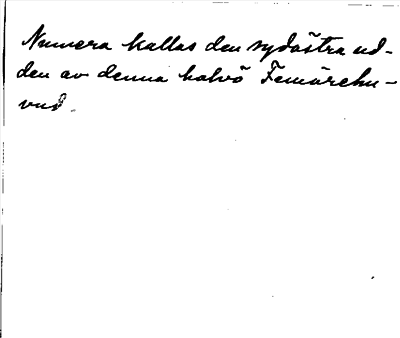 Numera kallas den sydöstra ud-
den av denna halvö Femörehu-
vud.